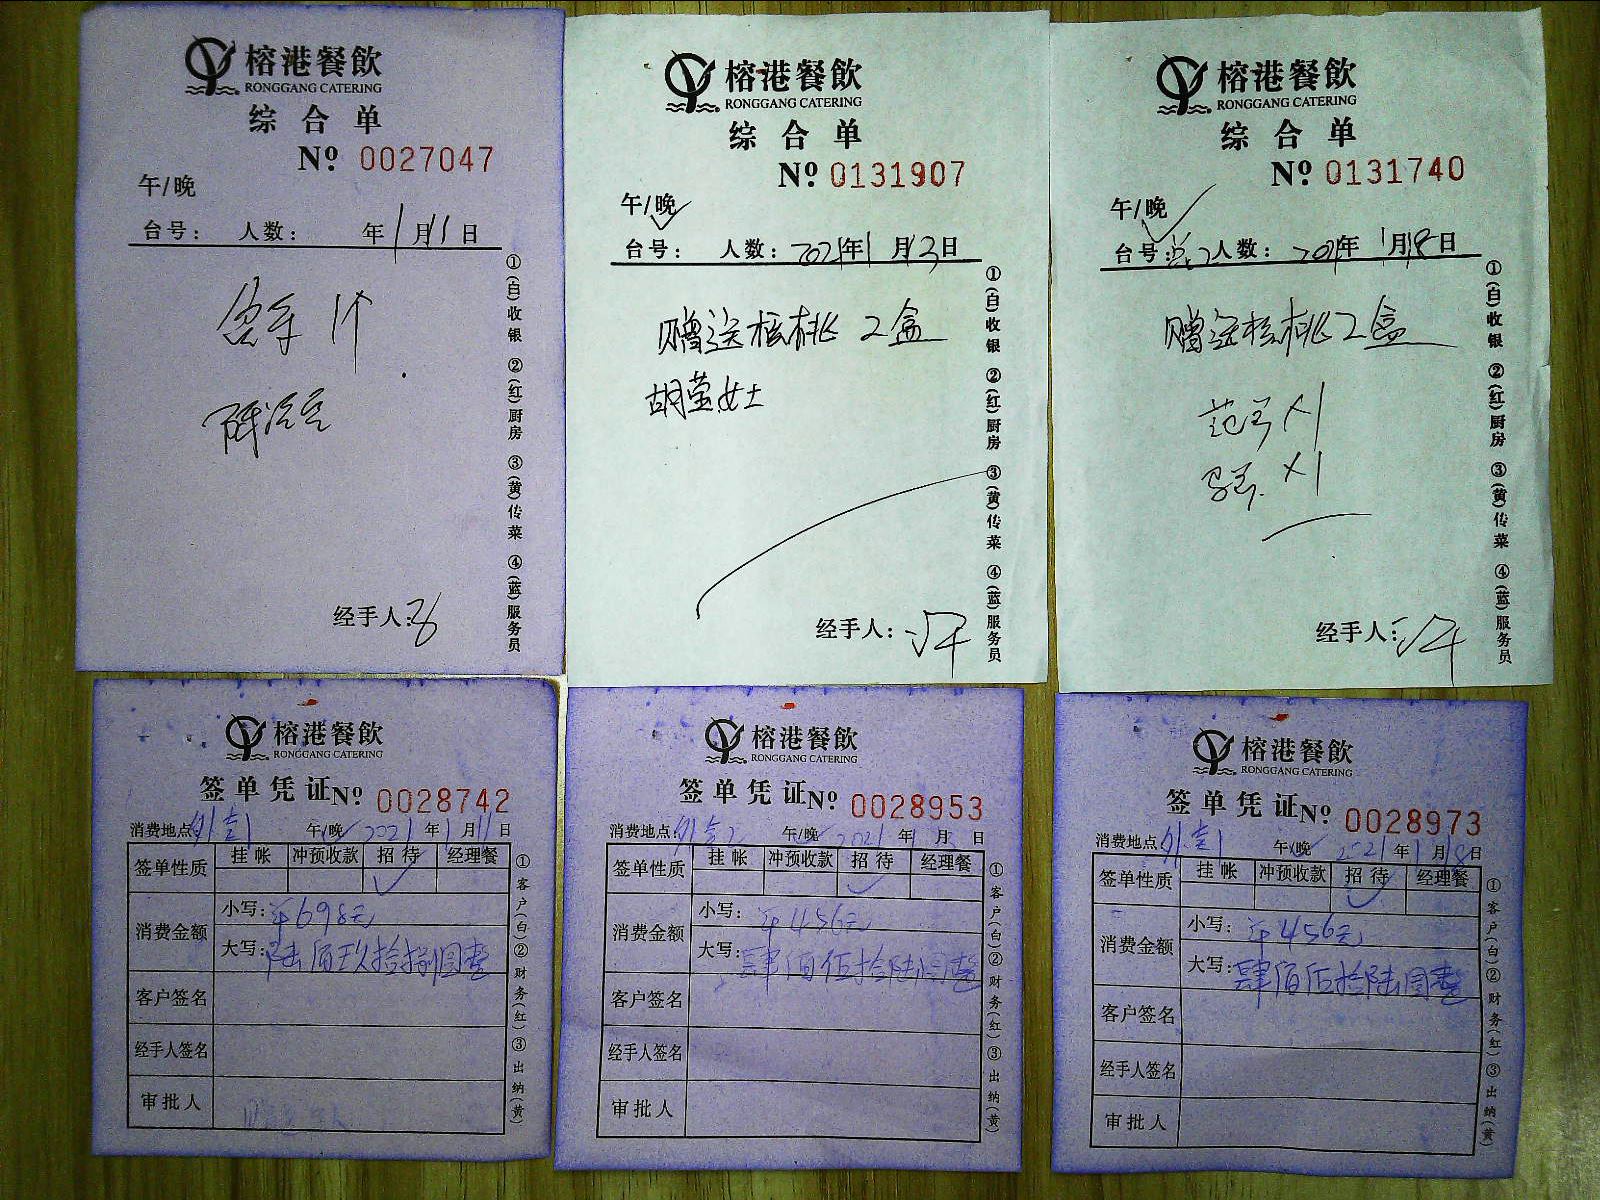 榕港餐飲
RONGGANG CATERING
综合单
Nº 0027047
午/晚
台号： 人数： 年1月11日
1个
经手人：
①(白)收银 ②(红)厨房 ③(黄)传菜 ④(蓝)服务员
榕港餐飲
RONGGANG CATERING
综合单
Nº 0131907
午/晚
台号： 人数： 2021年1月13日
赠送核桃2盒
胡莹女士
经手人：
①(白)收银 ②(红)厨房 ③(黄)传菜 ④(蓝)服务员
榕港餐飲
RONGGANG CATERING
综合单
Nº 0131740
午/晚
台号： 人数： 2021年1月18日
赠送核桃2盒
X1
X1
经手人：
①(白)收银 ②(红)厨房 ③(黄)传菜 ④(蓝)服务员
榕港餐飲
RONGGANG CATERING
签单凭证Nº 0028742
消费地点 外 午/晚 2021年1月11日
签单性质 挂帐 冲预收款 招待 经理餐
消费金额 小写： 698元
大写：陆佰玖拾捌圆整
客户签名
经手人签名
审批人
①客户(白)②财务(红)③出纳(黄)
榕港餐飲
RONGGANG CATERING
签单凭证Nº 0028953
消费地点 外 午/晚 2021年1月 日
签单性质 挂帐 冲预收款 招待 经理餐
消费金额 小写： 456元
大写：肆佰伍拾陆圆整
客户签名
经手人签名
审批人
①客户(白)②财务(红)③出纳(黄)
榕港餐飲
RONGGANG CATERING
签单凭证Nº 0028973
消费地点 外 午/晚 2021年1月18日
签单性质 挂帐 冲预收款 招待 经理餐
消费金额 小写： 456元
大写：肆佰伍拾陆圆整
客户签名
经手人签名
审批人
①客户(白)②财务(红)③出纳(黄)